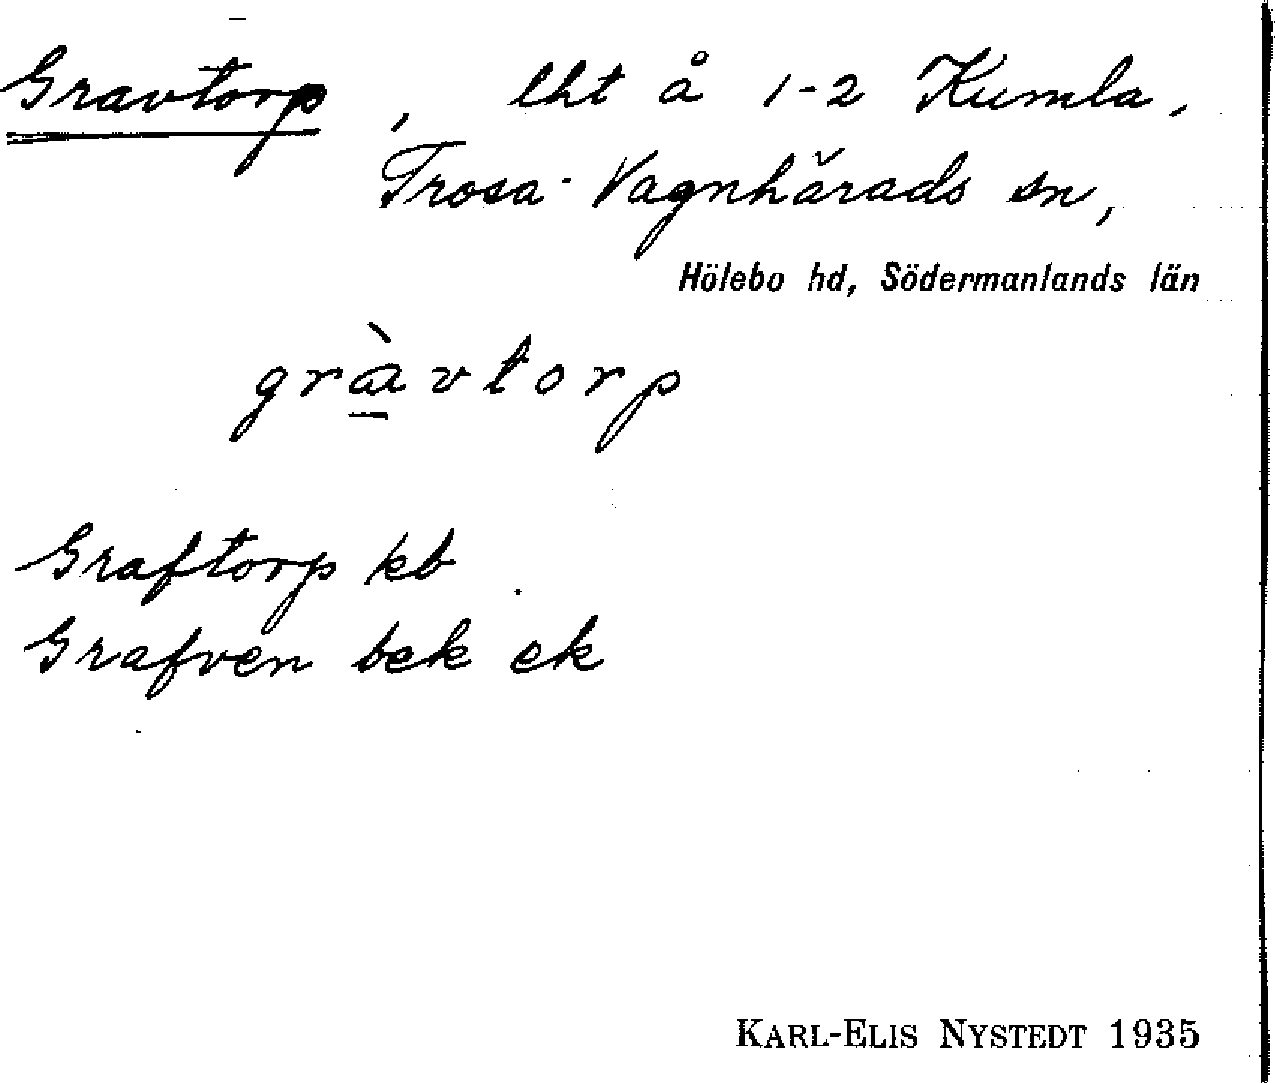 Gravtorp, lht å 1-2 Kumla,
Trosa-Vagnhärads sn,
Hölebo hd, Södermanlands län
gràvtorp
Graftorp kb
Grafven bek ek
KARL-ELIS NYSTEDT 1935